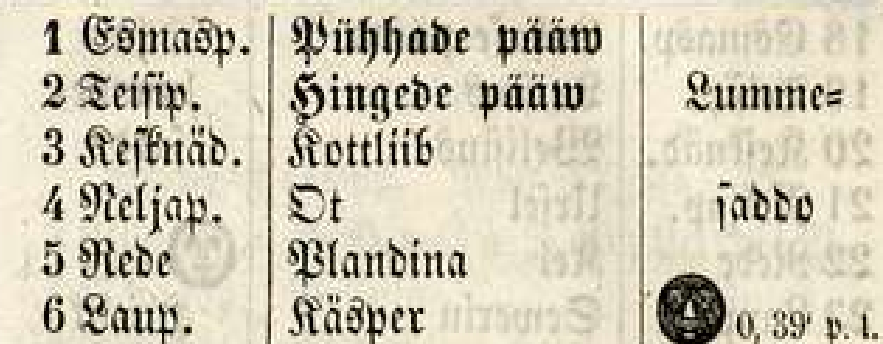 1 Esmasp. Pühhade pääw
2 Teisip. Hingede pääw Lumme=
3 Keſknäd. Kottliib
4 Neljap. Ot ſaddo
5 Rede Plandina
6 Laup. Käsper 0, 39' p. l.